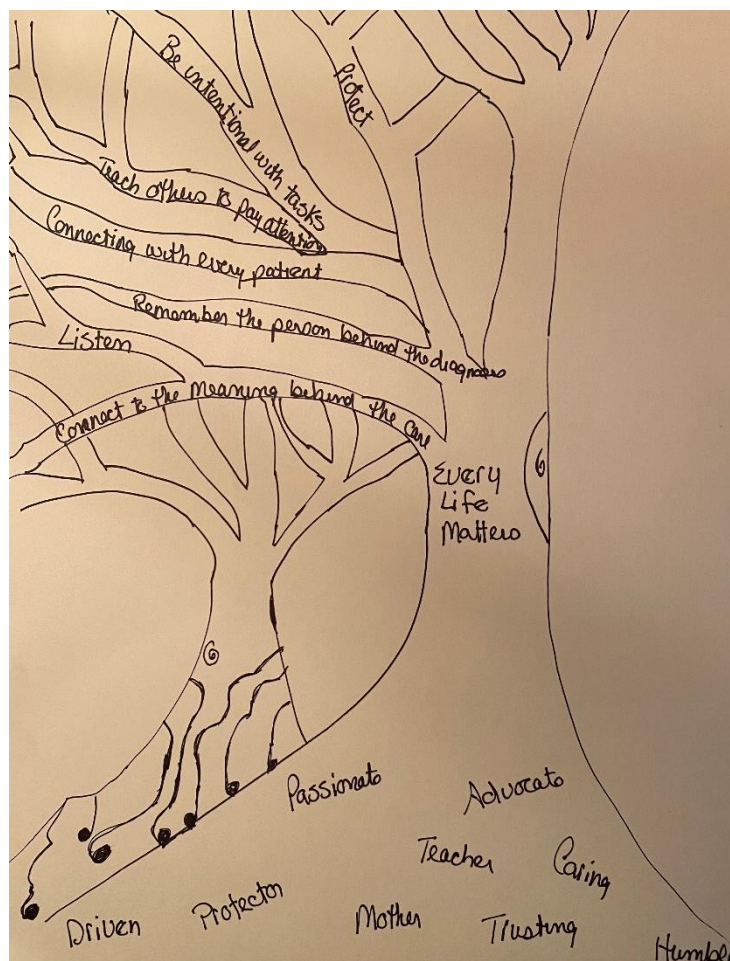 Be intentional with tasks
Protect
Teach others to pay attention
Connecting with every patient
Remember the person behind the diagnoses
Listen
Connect to the meaning behind the care
Every
Life
Matters
Passionate
Advocate
Teacher
Caring
Driven
Protector
Mother
Trusting
Humble